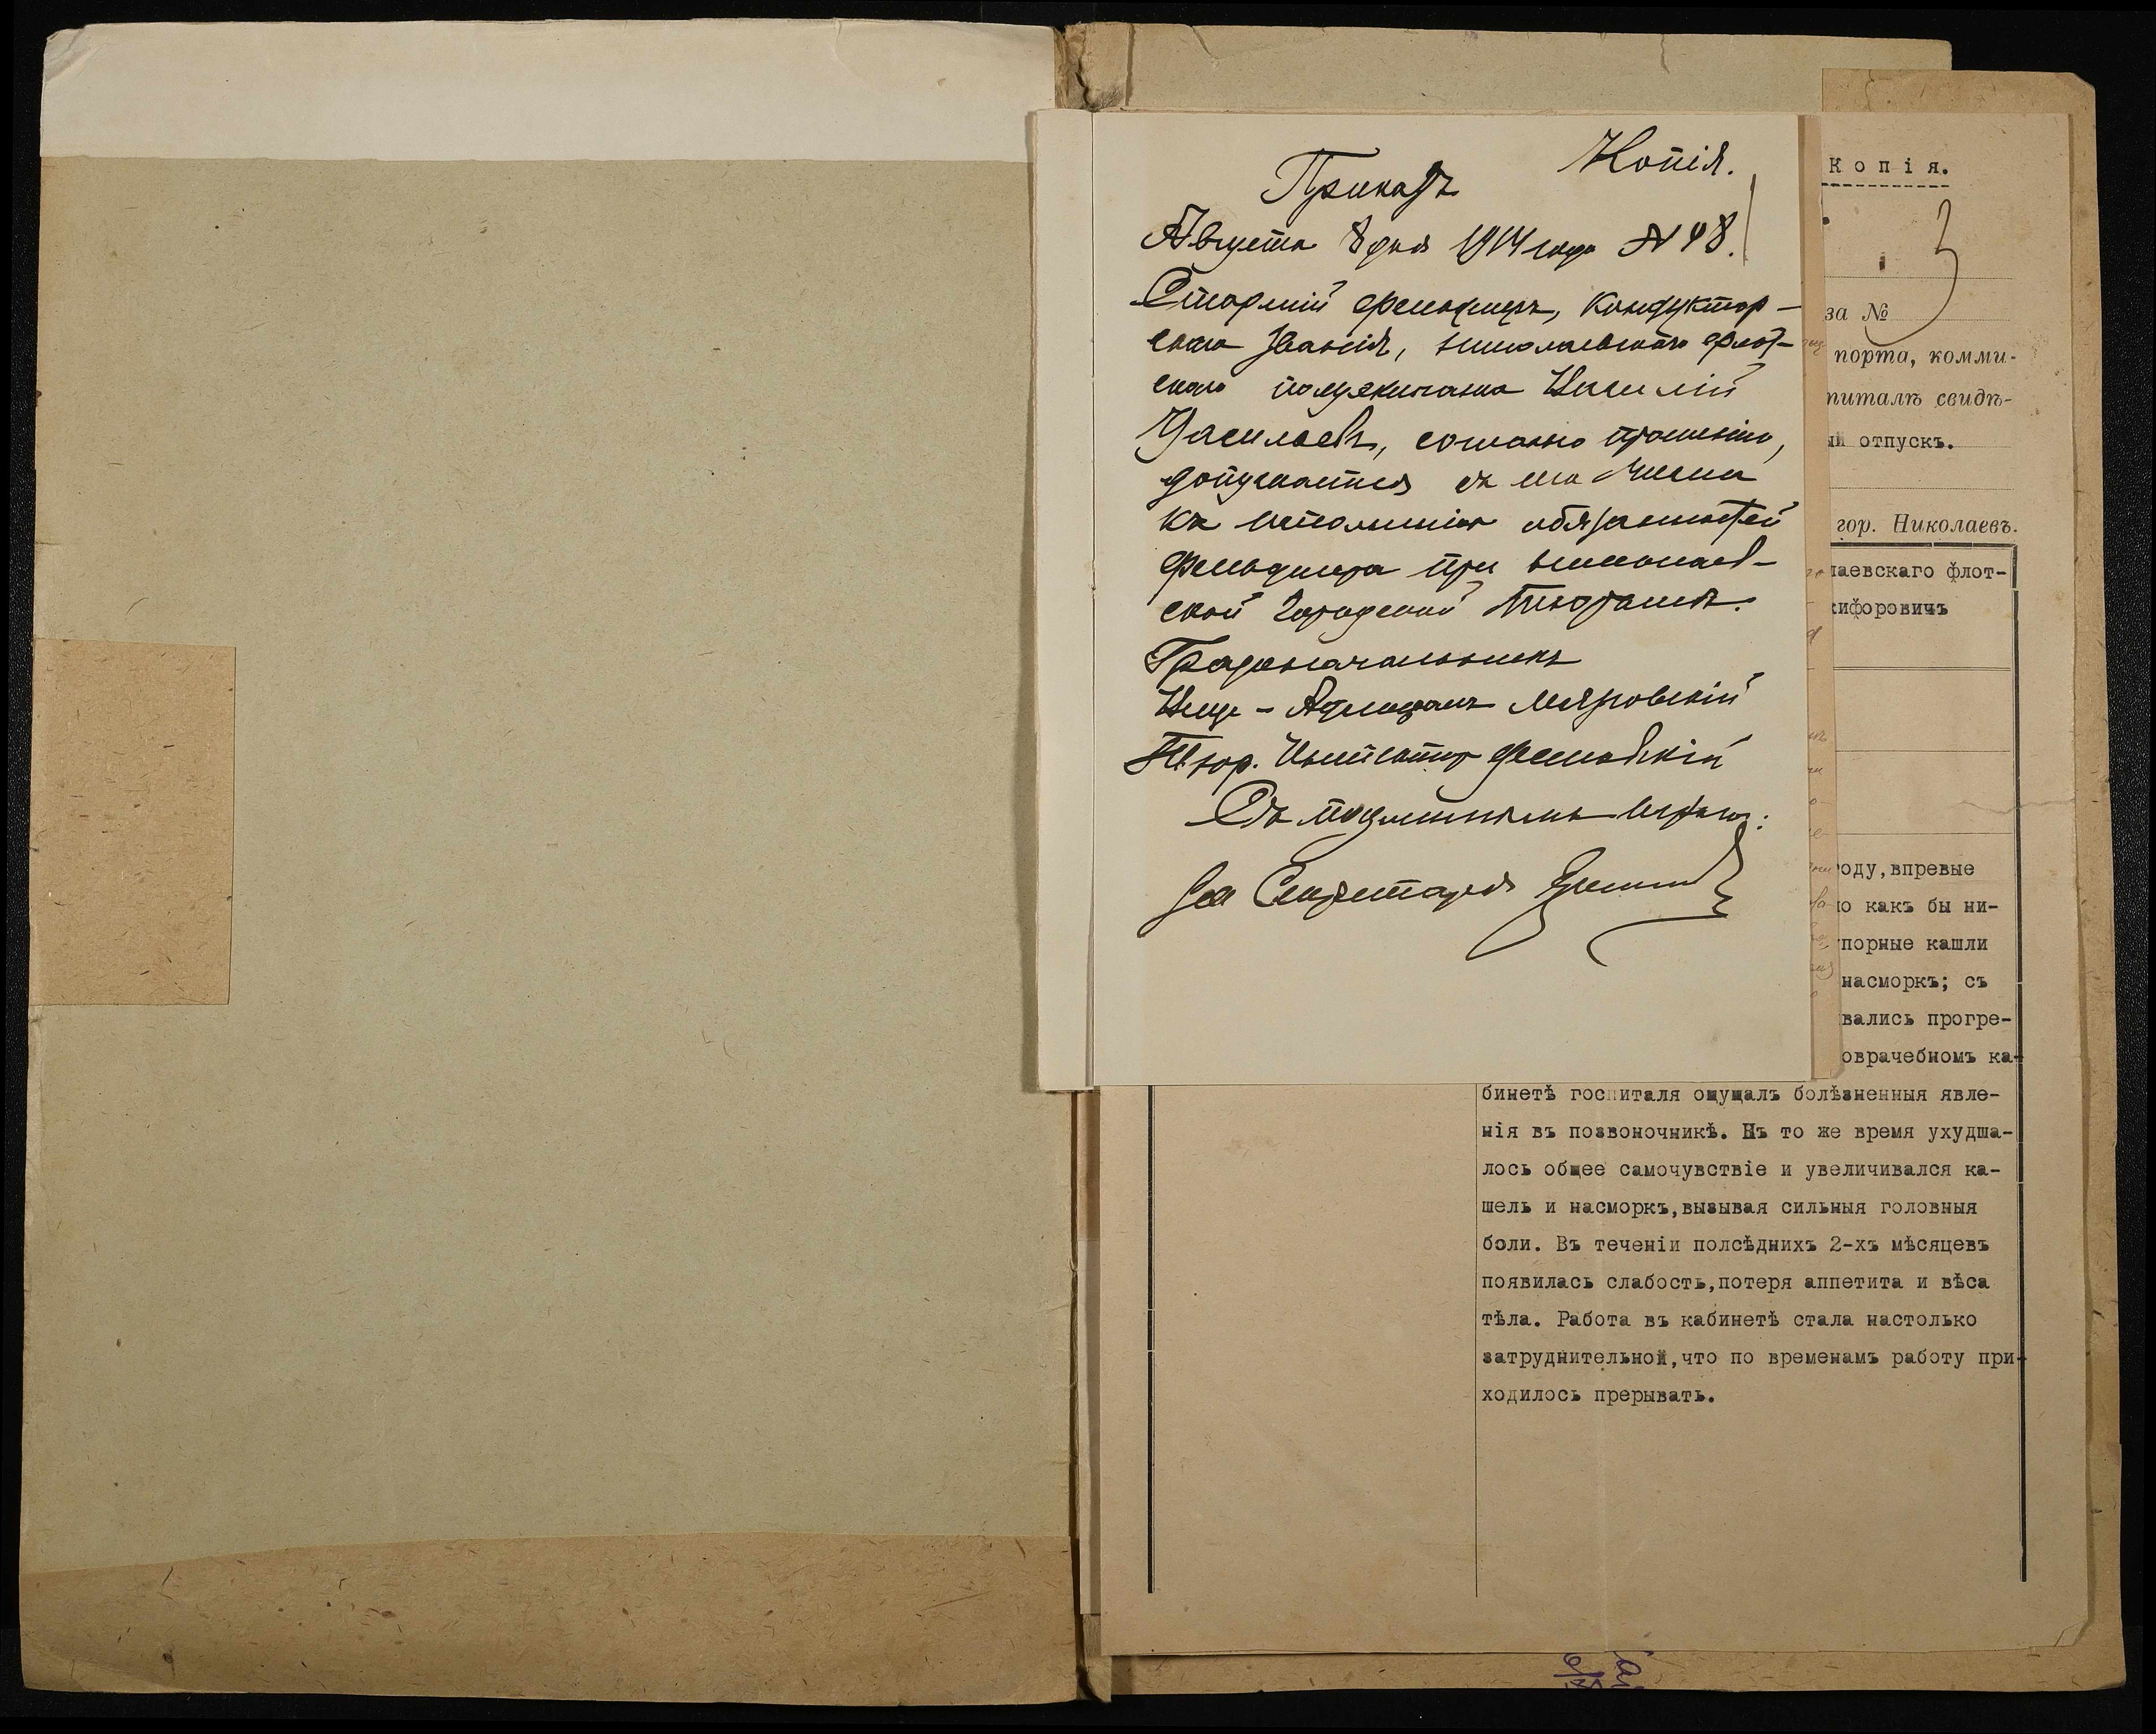 Копія.
Приказъ
Августа 8 дня 1914 года № 48.
Старшій фельдшеръ, кондуктор-
скаго званія, Николаевскаго флот-
скаго полуэкипажа Василій
Васильевъ, согласно прошенію,
допускается съ сего числа
къ исполненію обязанностей
фельдшера при Николаев-
ской городской тюрьмѣ.
Градоначальникъ
Вице-Адмиралъ Мязговскій
Тюр. Инспекторъ
Съ подлиннымъ вѣрно:
За Секретаря
Копія.
3
за №
порта, комми-
питалѣ свидѣ-
ый отпускъ.
гор. Николаевъ.
лаевскаго флот-
кифоровичъ
оду,впревые
ю какъ бы ни-
порные кашли
насморкъ; съ
вались прогре-
оврачебномъ ка-
бинетѣ госпиталя ощущалъ болѣзненныя явле-
нія въ позвоночникѣ. Въ то же время ухудша-
лось общее самочувствіе и увеличивался ка-
шель и насморкъ,вызывая сильныя головныя
боли. Въ теченіи полсѣднихъ 2-хъ мѣсяцевъ
появилась слабость,потеря аппетита и вѣса
тѣла. Работа въ кабинетѣ стала настолько
затруднительной,что по временамъ работу при-
ходилось прерывать.